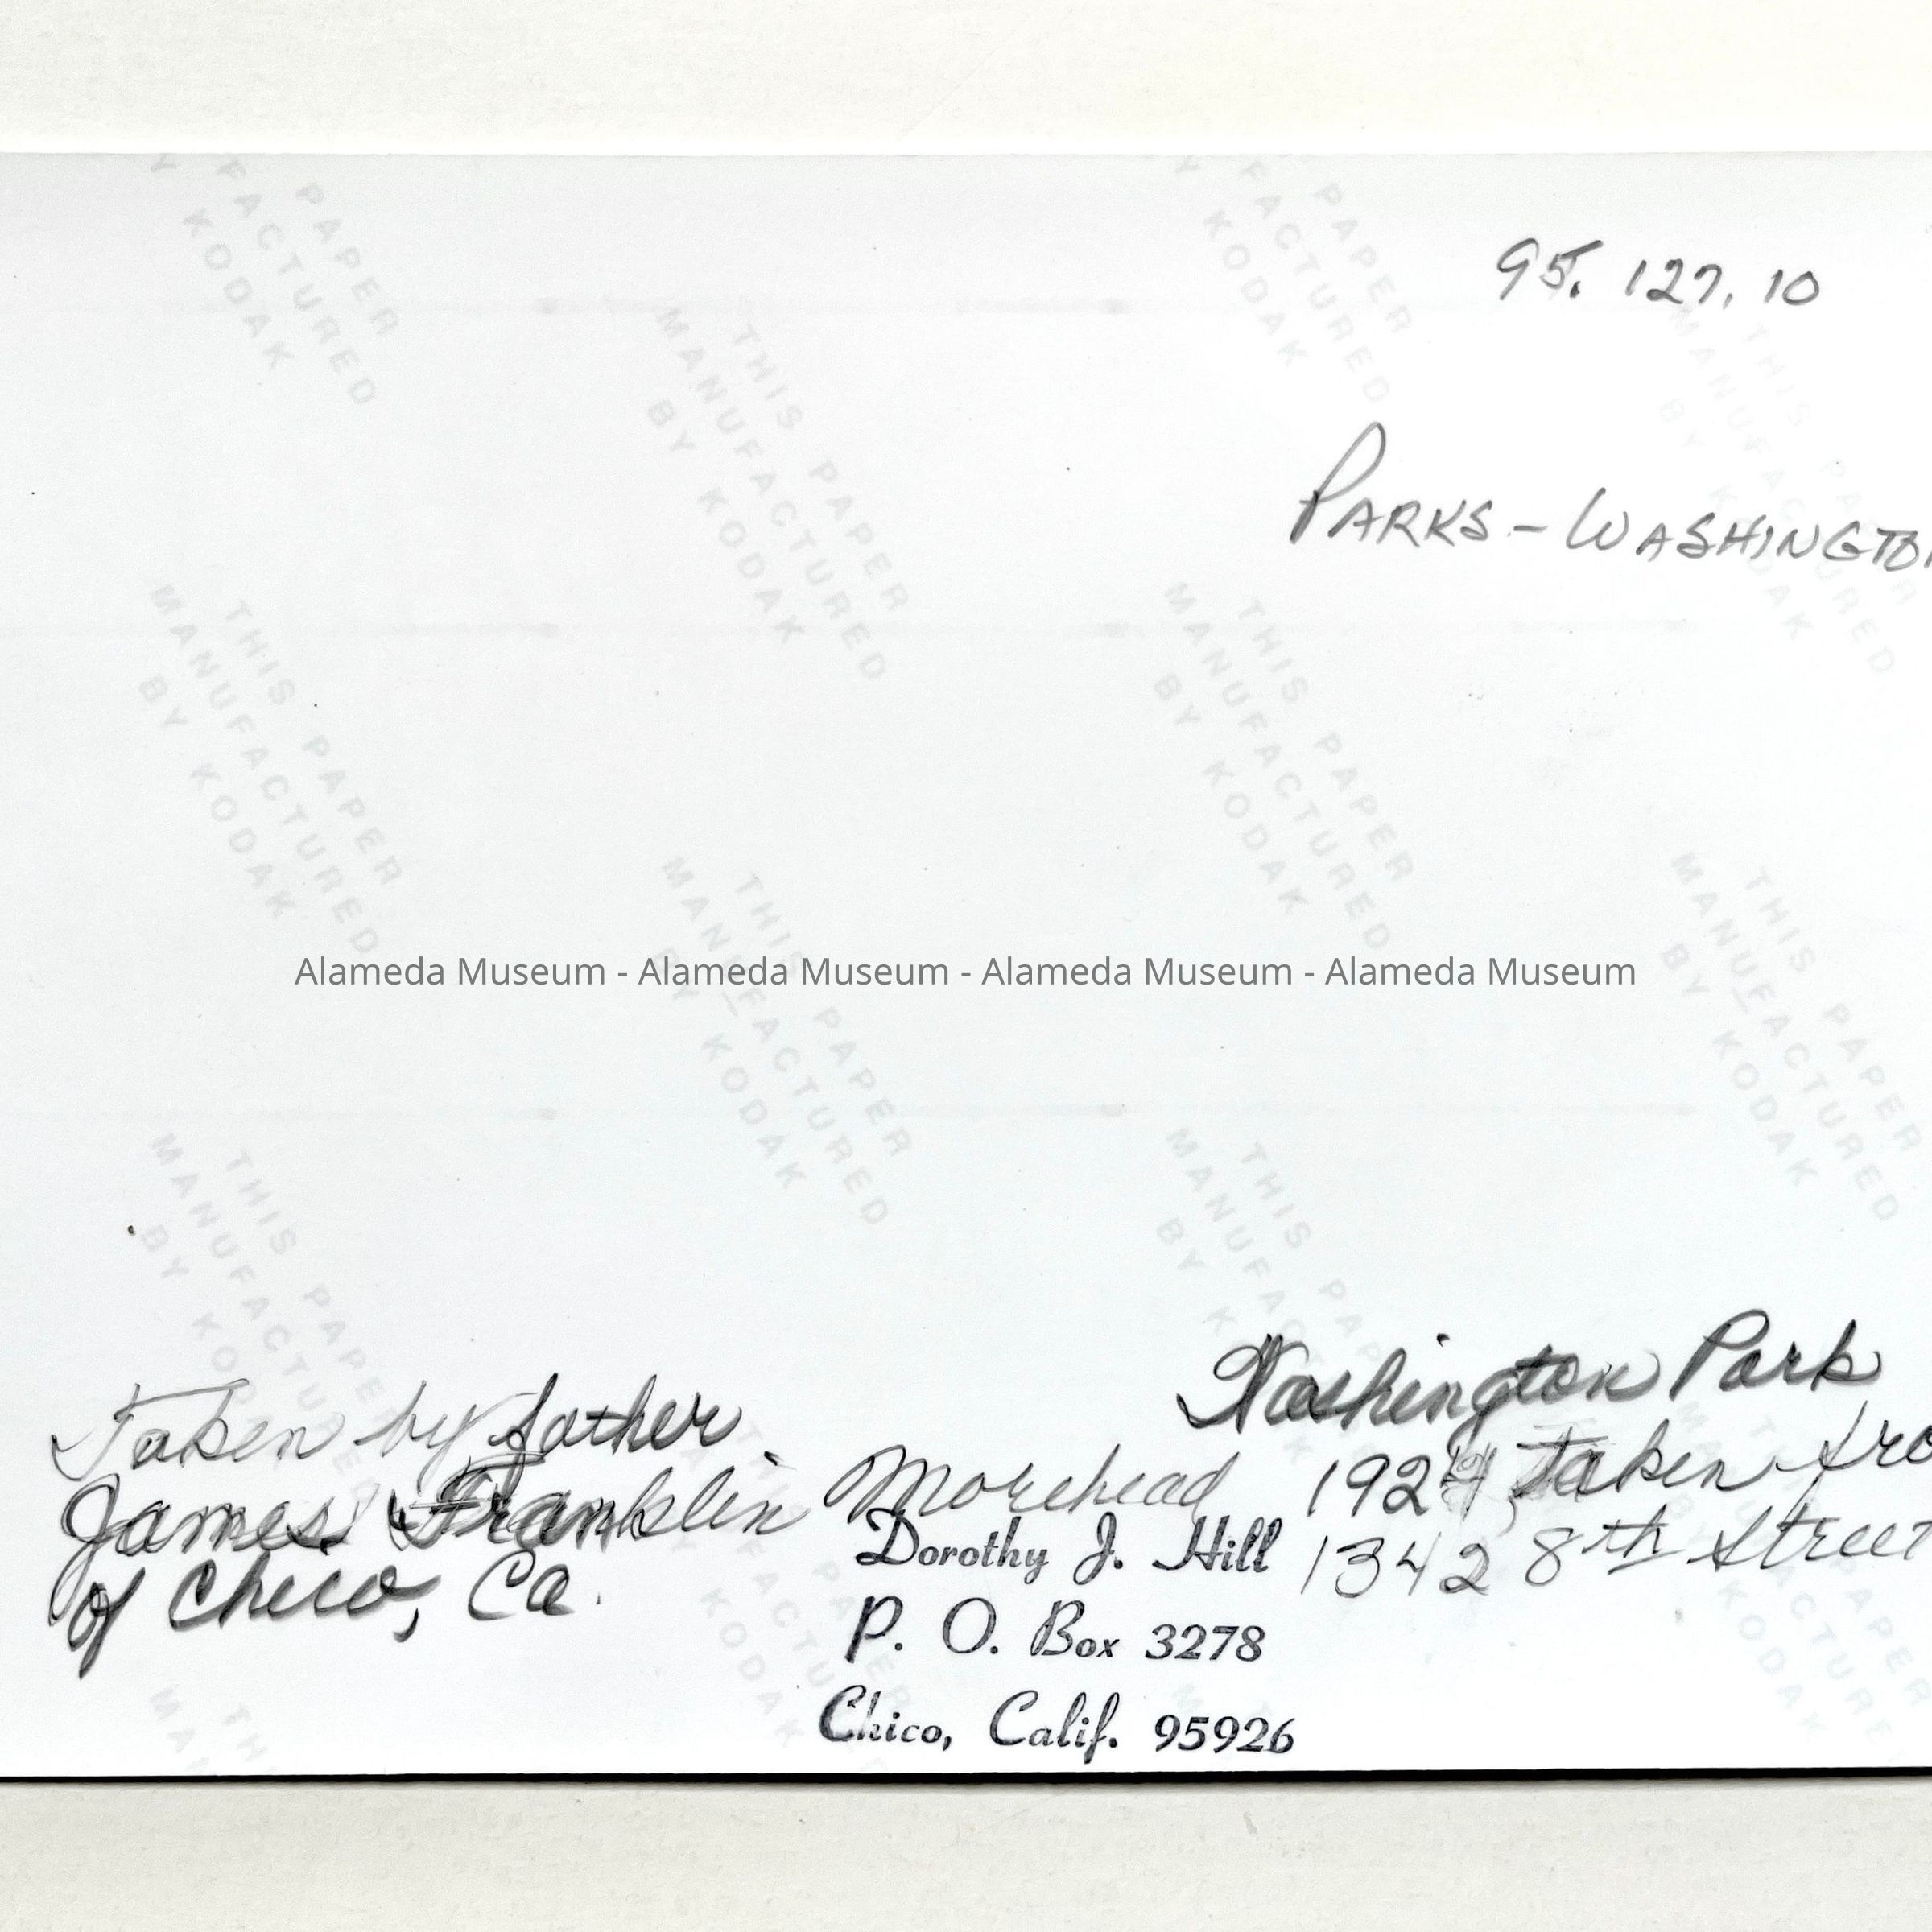 95.127.10
PARKS - WASHINGTON
Alameda Museum - Alameda Museum - Alameda Museum - Alameda Museum
Washington Park
Taken by father
James Franklin Morehead
of Chico, Ca.
taken
1342 8th Street
Dorothy J. Hill
P. O. Box 3278
Chico, Calif. 95926
THIS PAPER
MANUFACTURED
BY KODAK